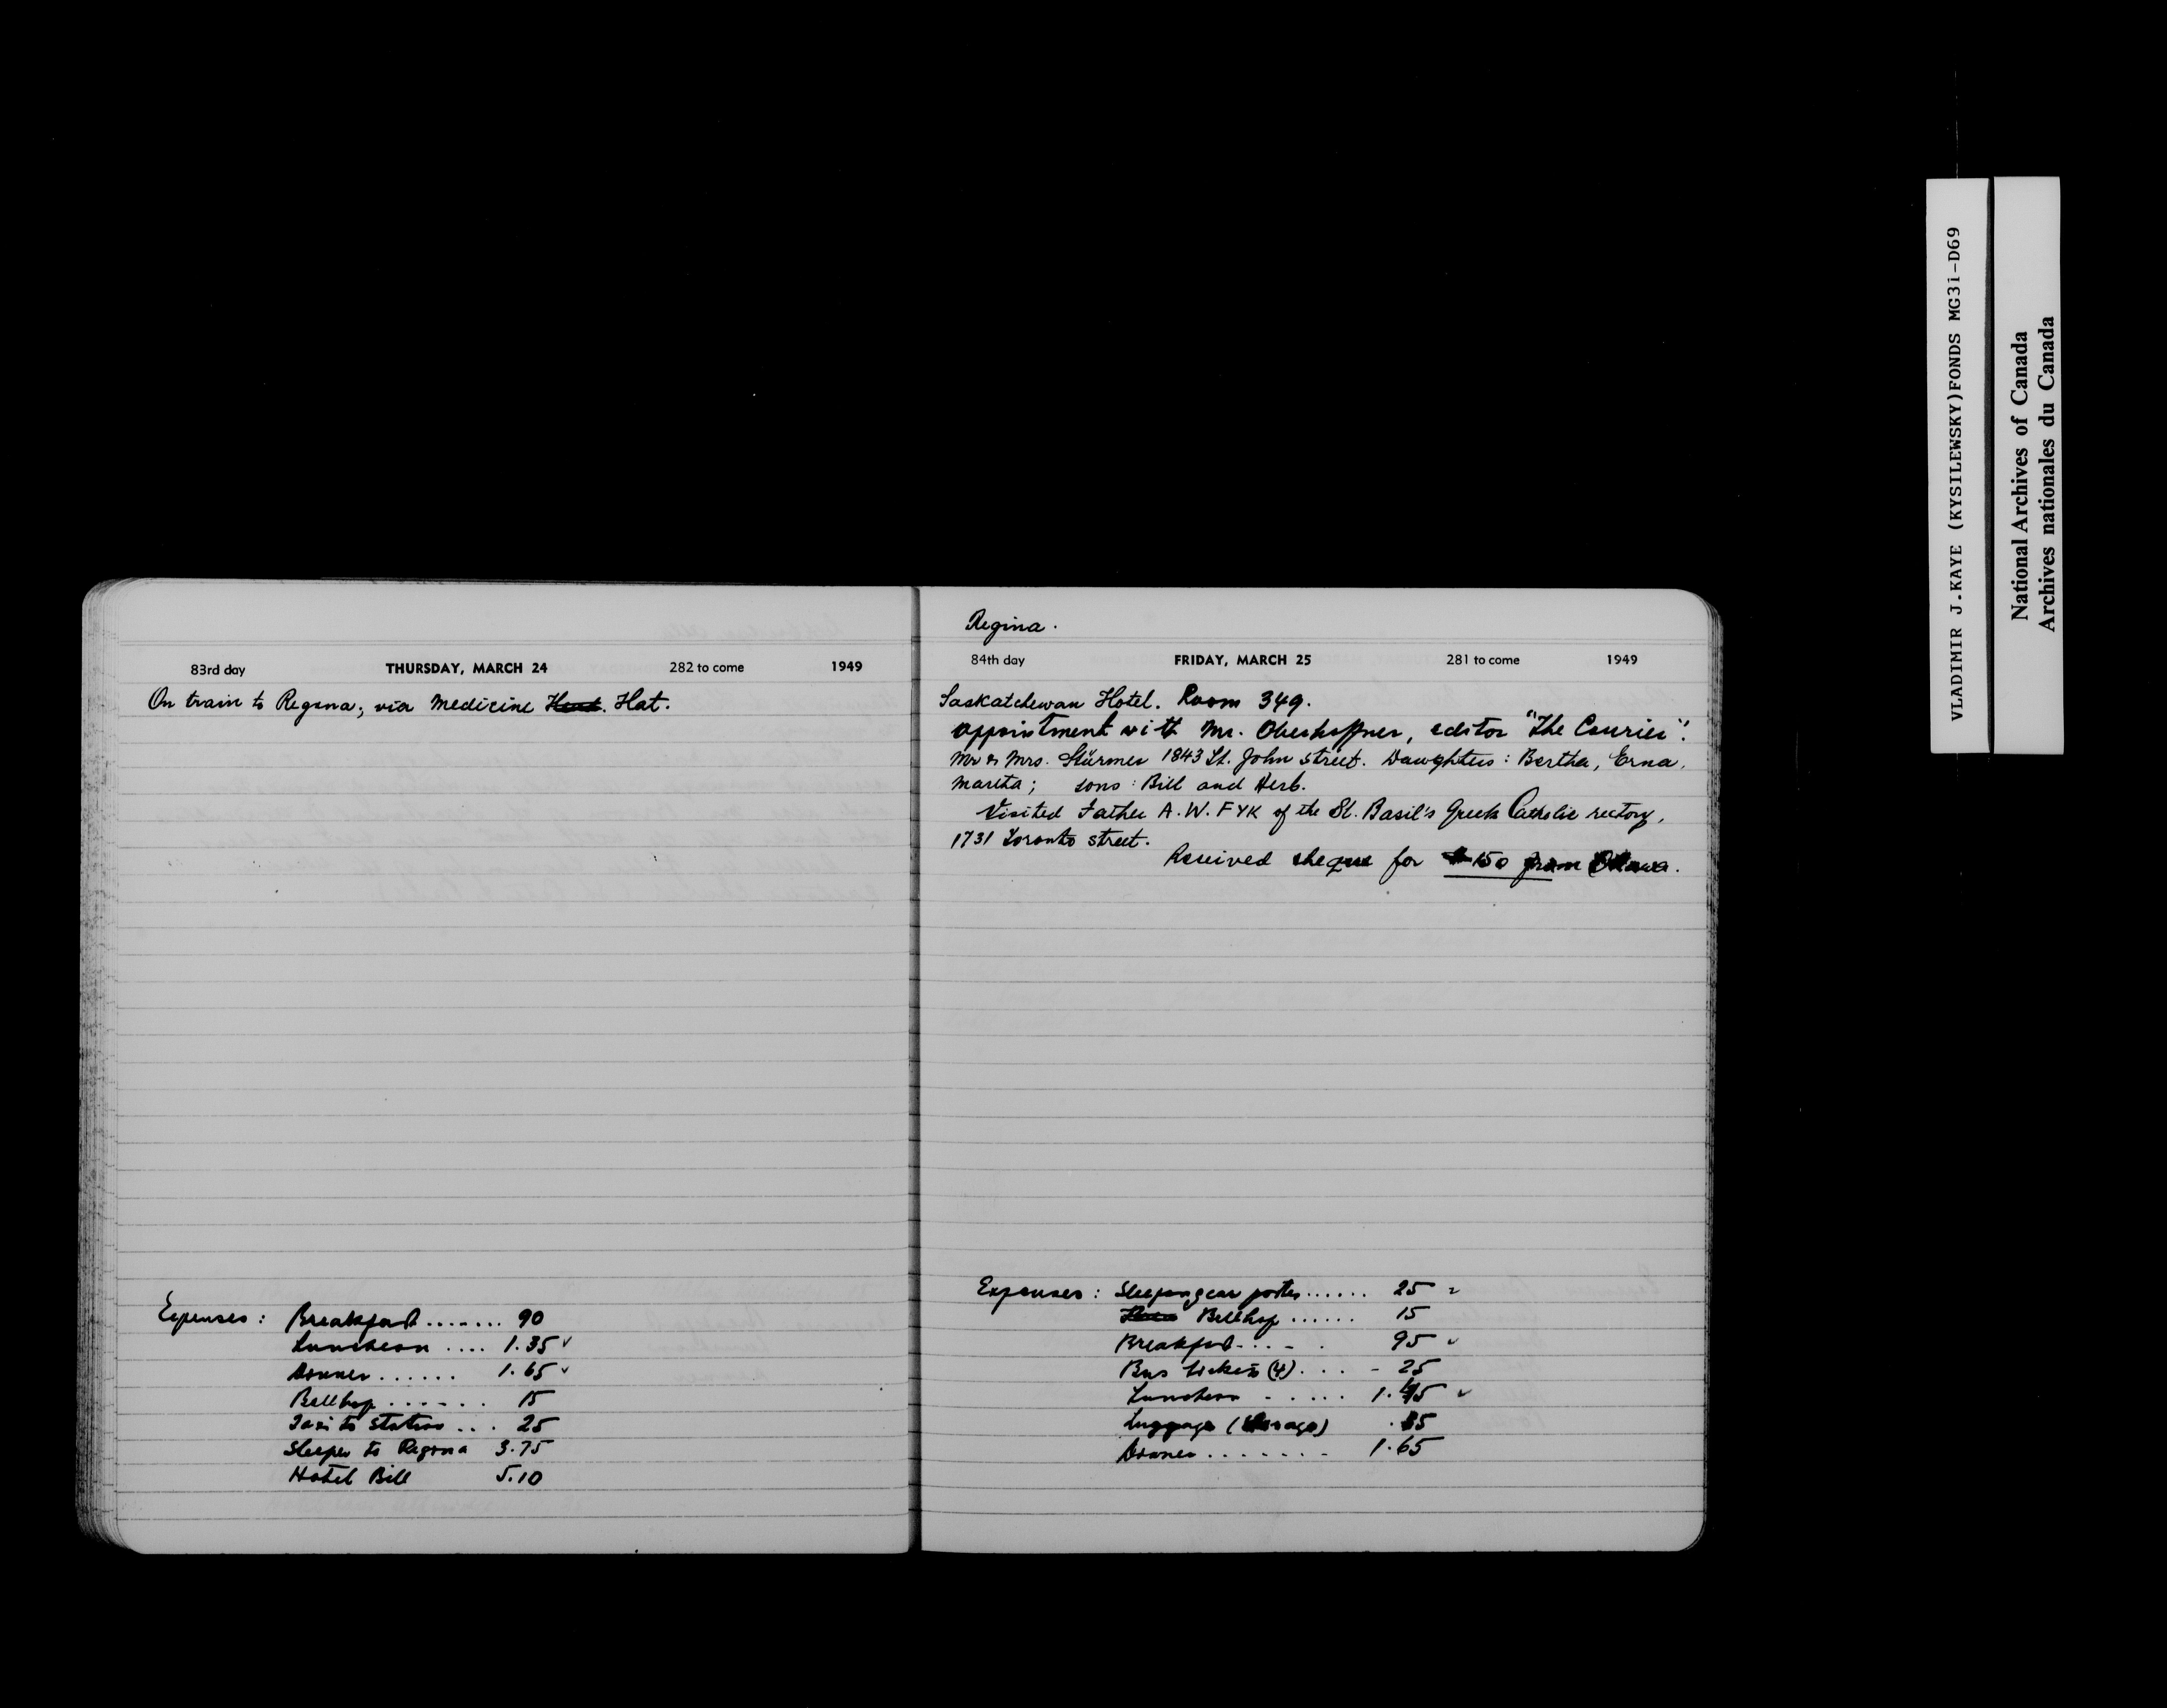 83rd day THURSDAY, MARCH 24 282 to come 1949
On train to Regina, via Medicine Hat.
Expenses: Breakfast ....... 90
Luncheon .... 1.35 ✓
Dinner ...... 1.65 ✓
Bellhop ...... 15
Taxi to station ... 25
Sleeper to Regina 3.75
Hotel Bill 5.10
Regina.
84th day FRIDAY, MARCH 25 281 to come 1949
Saskatchewan Hotel. Room 349.
Appointment with Mr. Oberhoffner, editor "The Courier".
Mr & Mrs. Stürmer 1843 St. John street. Daughters: Bertha, Erna,
Martha; sons: Bill and Herb.
Visited Father A.W. FYK of the St. Basil's Greek Catholic rectory,
1731 Toronto street.
Received cheque for $150 from Ottawa.
Expenses: Sleepingcar porter ...... 25
Bellhop ...... 15
Breakfast .... 95 ✓
Bus tickets (4) ... - 25
Luncheon ..... 1.45 ✓
Luggage
Dinner ....... 1.65
VLADIMIR J.KAYE (KYSILEWSKY)FONDS MG31-D69
National Archives of Canada
Archives nationales du Canada